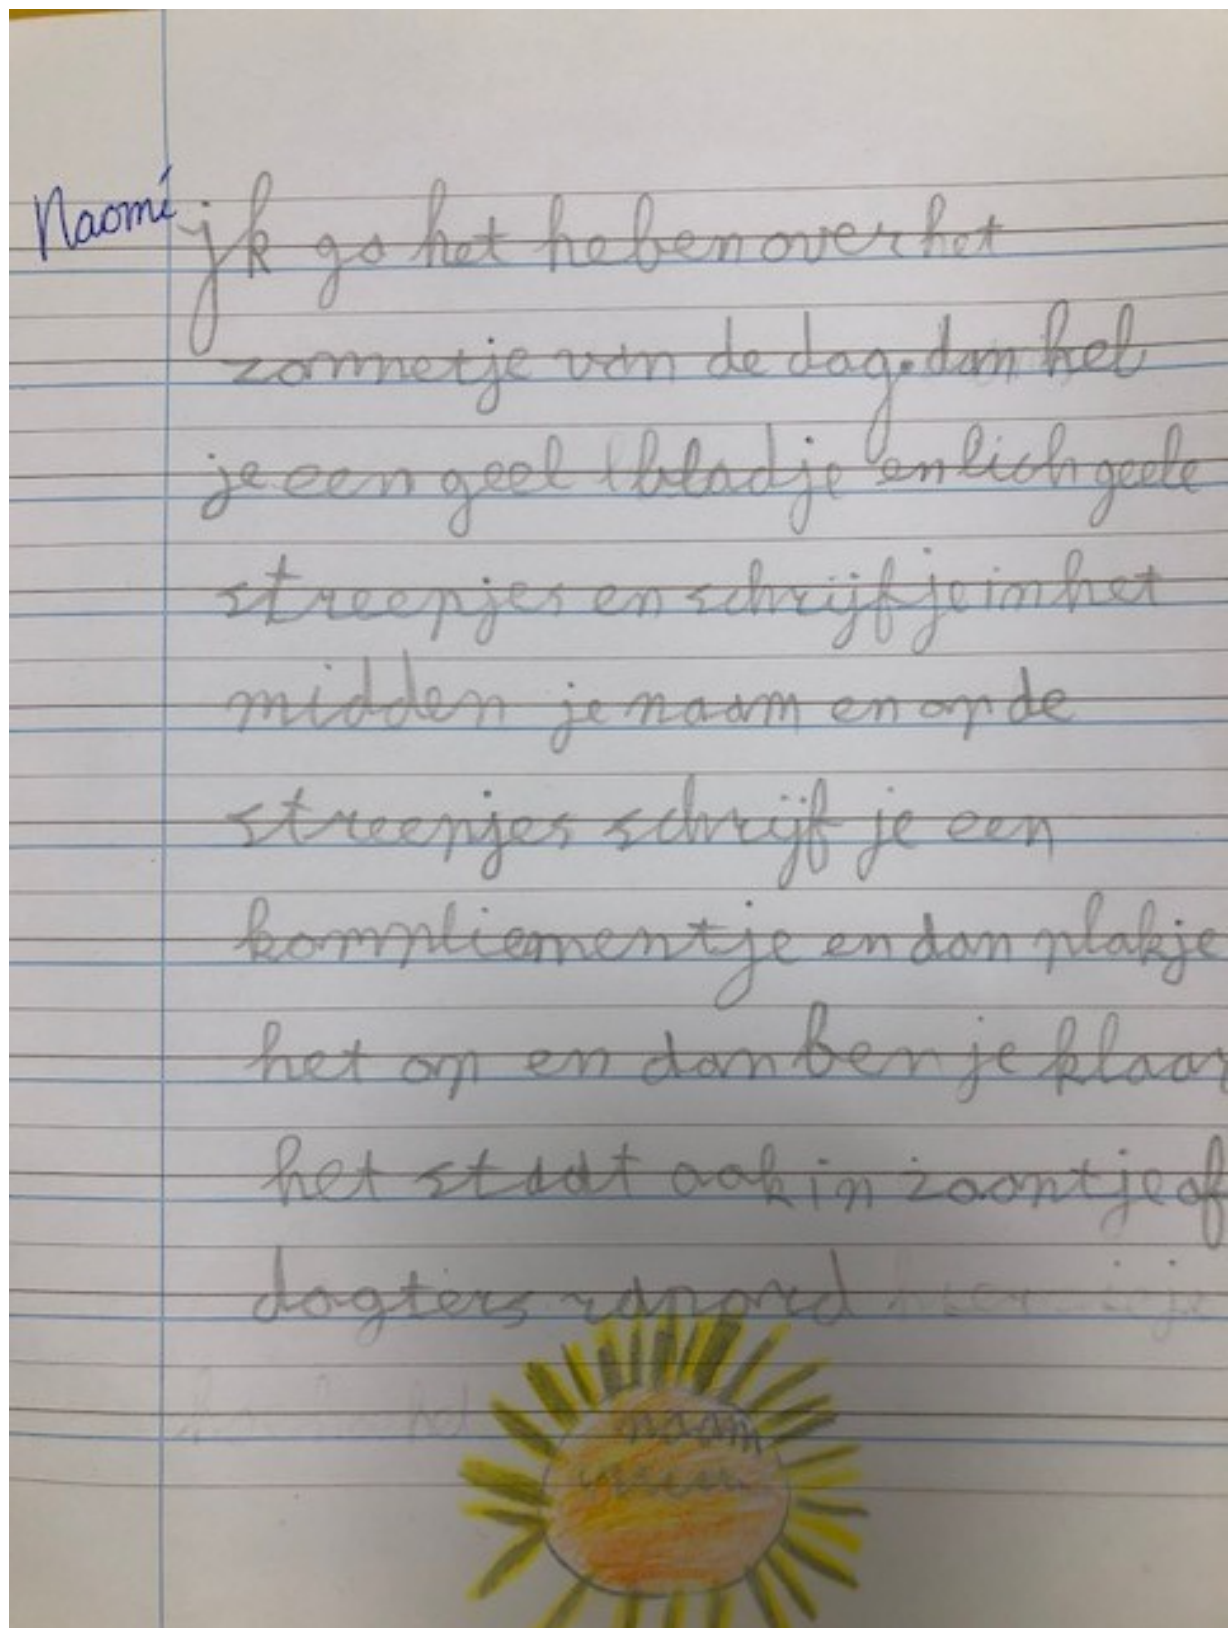 Naomi
jk ga het heben over het
zonnetje van de dag. dan heb
je een geel bladje en lich geele
streepjes en schrijf je in het
midden je naam en op de
streepjes schrijf je een
kompliementje en dan plakje
het op en dan ben je klaar
het staat ook in zoontje of
dogters rapord
het
naam